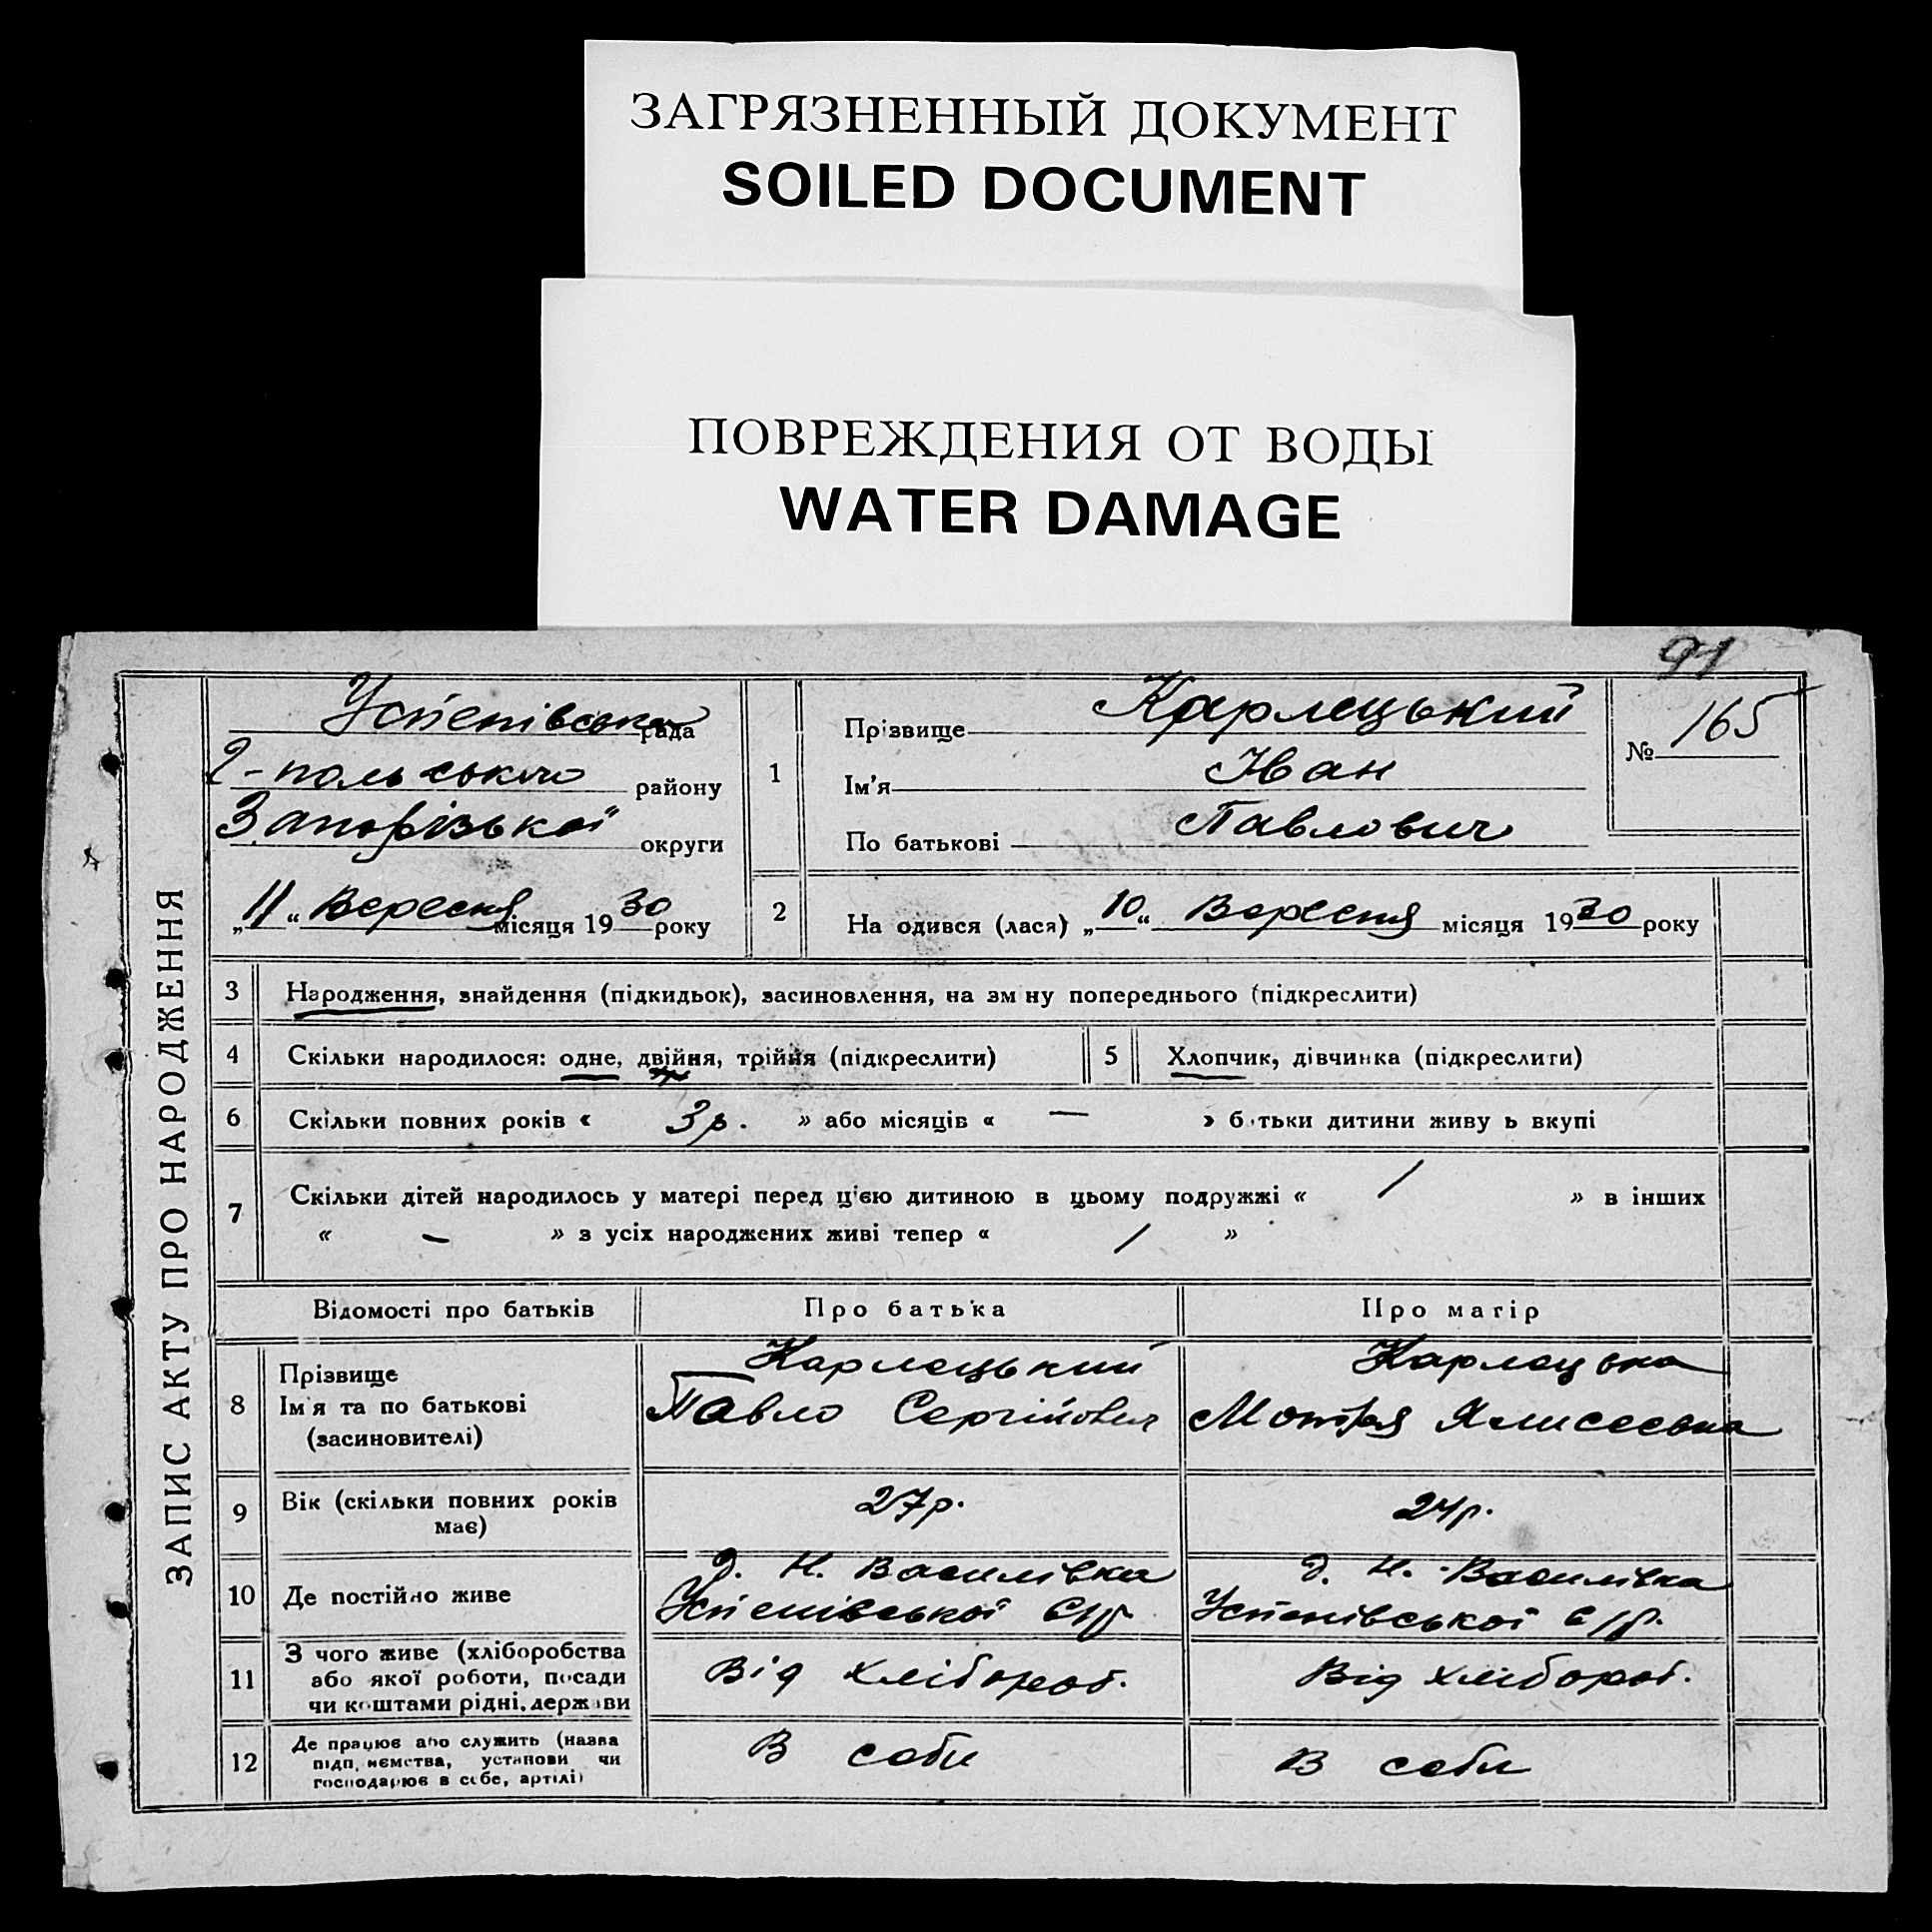 ЗАГРЯЗНЕННЫЙ ДОКУМЕНТ
SOILED DOCUMENT
ПОВРЕЖДЕНИЯ ОТ ВОДЫ
WATER DAMAGE
91
ЗАПИС АКТУ ПРО НАРОДЖЕННЯ
Успенівська рада
Г-польського району
Запорізької округи
„11“ Вересня місяця 1930 року
1 Прізвище Карлецький
Ім'я Іван
По батькові Павлович
№ 165
2 На одився (лася) „10“ Вересня місяця 1930 року
3 Народження, знайдення (підкидьок), засиновлення, на зм ну попереднього (підкреслити)
4 Скільки народилося: одне, двійня, трійня (підкреслити) 5 Хлопчик, дівчинка (підкреслити)
6 Скільки повних років « 3 р. » або місяців « — » б тьки дитини живу ь вкупі
7 Скільки дітей народилось у матері перед цією дитиною в цьому подружжі « 1 » в інших
« — » з усіх народжених живі тепер « 1 »
Відомості про батьків Про батька Про матір
8 Прізвище Карлецький Карлецька
Ім'я та по батькові Павло Сергійович Мотря
(засиновителі)
9 Вік (скільки повних років має) 27 р. 24 р.
10 Де постійно живе д. Н. Василівка д. Н. Василівка
Успенівської с/р. Успенівської с/р.
11 З чого живе (хліборобства
або якої роботи, посади Від хлібороб. Від хлібороб.
чи коштами рідні, держави
12 Де працює або служить (назва
підп, иємства, установи чи В соби В соби
господарює в себе, артілі)